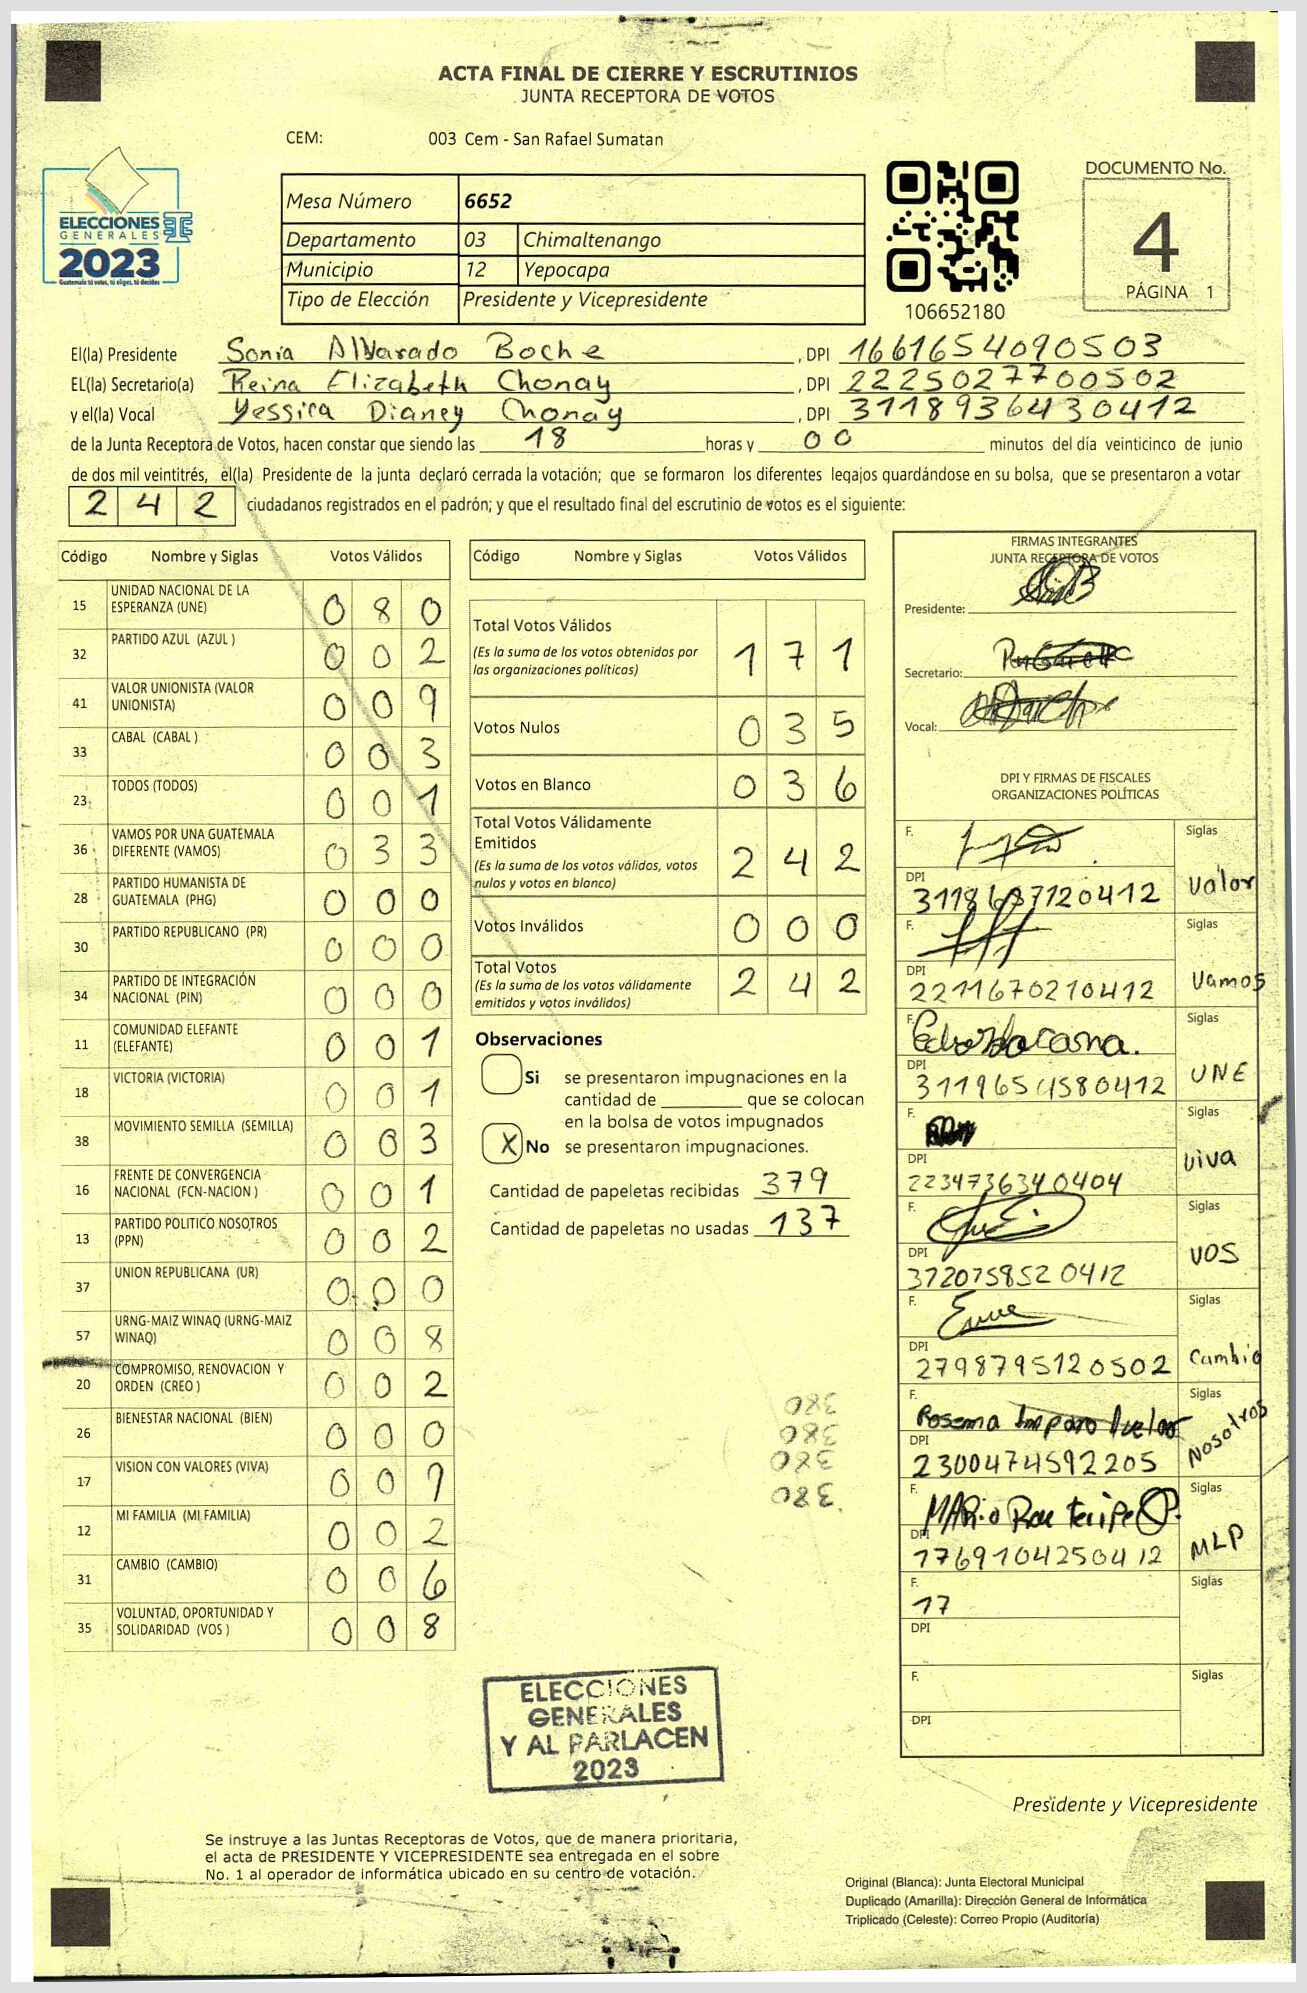 ACTA FINAL DE CIERRE Y ESCRUTINIOS
JUNTA RECEPTORA DE VOTOS
CEM: 003 Cem - San Rafael Sumatan
ELECCIONES
GENERALES
2023
Guatemala tú votas, tú eliges, tú decides
TE
Mesa Número 6652
Departamento 03 Chimaltenango
Municipio 12 Yepocapa
Tipo de Elección Presidente y Vicepresidente
106652180
DOCUMENTO No.
4
PÁGINA 1
El(la) Presidente Sonia Alvarado Boche, DPI 1661654090503
EL(la) Secretario(a) Reina Elizabeth Chonay, DPI 2225027700502
y el(la) Vocal Yessica Dianey Chonay, DPI 3118936430412
de la Junta Receptora de Votos, hacen constar que siendo las 18 horas y 00 minutos del día veinticinco de junio
de dos mil veintitrés, el(la) Presidente de la junta declaró cerrada la votación; que se formaron los diferentes legajos guardándose en su bolsa, que se presentaron a votar
242 ciudadanos registrados en el padrón; y que el resultado final del escrutinio de votos es el siguiente:
Código Nombre y Siglas Votos Válidos
15 UNIDAD NACIONAL DE LA ESPERANZA (UNE) 080
32 PARTIDO AZUL (AZUL ) 002
41 VALOR UNIONISTA (VALOR UNIONISTA) 009
33 CABAL (CABAL ) 003
23 TODOS (TODOS) 001
36 VAMOS POR UNA GUATEMALA DIFERENTE (VAMOS) 033
28 PARTIDO HUMANISTA DE GUATEMALA (PHG) 000
30 PARTIDO REPUBLICANO (PR) 000
34 PARTIDO DE INTEGRACIÓN NACIONAL (PIN) 000
11 COMUNIDAD ELEFANTE (ELEFANTE) 001
18 VICTORIA (VICTORIA) 001
38 MOVIMIENTO SEMILLA (SEMILLA) 003
16 FRENTE DE CONVERGENCIA NACIONAL (FCN-NACION ) 001
13 PARTIDO POLITICO NOSOTROS (PPN) 002
37 UNION REPUBLICANA (UR) 000
57 URNG-MAIZ WINAQ (URNG-MAIZ WINAQ) 008
20 COMPROMISO, RENOVACION Y ORDEN (CREO ) 002
26 BIENESTAR NACIONAL (BIEN) 000
17 VISION CON VALORES (VIVA) 009
12 MI FAMILIA (MI FAMILIA) 002
31 CAMBIO (CAMBIO) 006
35 VOLUNTAD, OPORTUNIDAD Y SOLIDARIDAD (VOS ) 008
Código Nombre y Siglas Votos Válidos
Total Votos Válidos 171
(Es la suma de los votos obtenidos por
las organizaciones políticas)
Votos Nulos 035
Votos en Blanco 036
Total Votos Válidamente
Emitidos 242
(Es la suma de los votos válidos, votos
nulos y votos en blanco)
Votos Inválidos 000
Total Votos 242
(Es la suma de los votos válidamente
emitidos y votos inválidos)
Observaciones
Si se presentaron impugnaciones en la
cantidad de ________ que se colocan
en la bolsa de votos impugnados
X No se presentaron impugnaciones.
Cantidad de papeletas recibidas 379
Cantidad de papeletas no usadas 137
380
380
380
380
FIRMAS INTEGRANTES
JUNTA RECEPTORA DE VOTOS
Presidente:
Secretario:
Vocal:
DPI Y FIRMAS DE FISCALES
ORGANIZACIONES POLÍTICAS
F. Siglas
DPI 3118687120412 Valor
F. Siglas
DPI 2211670210412 Vamos
F. Siglas
DPI 3119654580412 UNE
F. Siglas
DPI 2234736340404 viva
F. Siglas
DPI 3720758520412 VOS
F. Siglas
DPI 2798795120502 Cambio
F. Siglas
DPI 2300474592205 Nosotros
F. MARio Siglas
DPI 1769104250412 MLP
F. 17 Siglas
DPI
F. Siglas
DPI
ELECCIONES
GENERALES
Y AL PARLACEN
2023
Presidente y Vicepresidente
Se instruye a las Juntas Receptoras de Votos, que de manera prioritaria,
el acta de PRESIDENTE Y VICEPRESIDENTE sea entregada en el sobre
No. 1 al operador de informática ubicado en su centro de votación.
Original (Blanca): Junta Electoral Municipal
Duplicado (Amarilla): Dirección General de Informática
Triplicado (Celeste): Correo Propio (Auditoría)